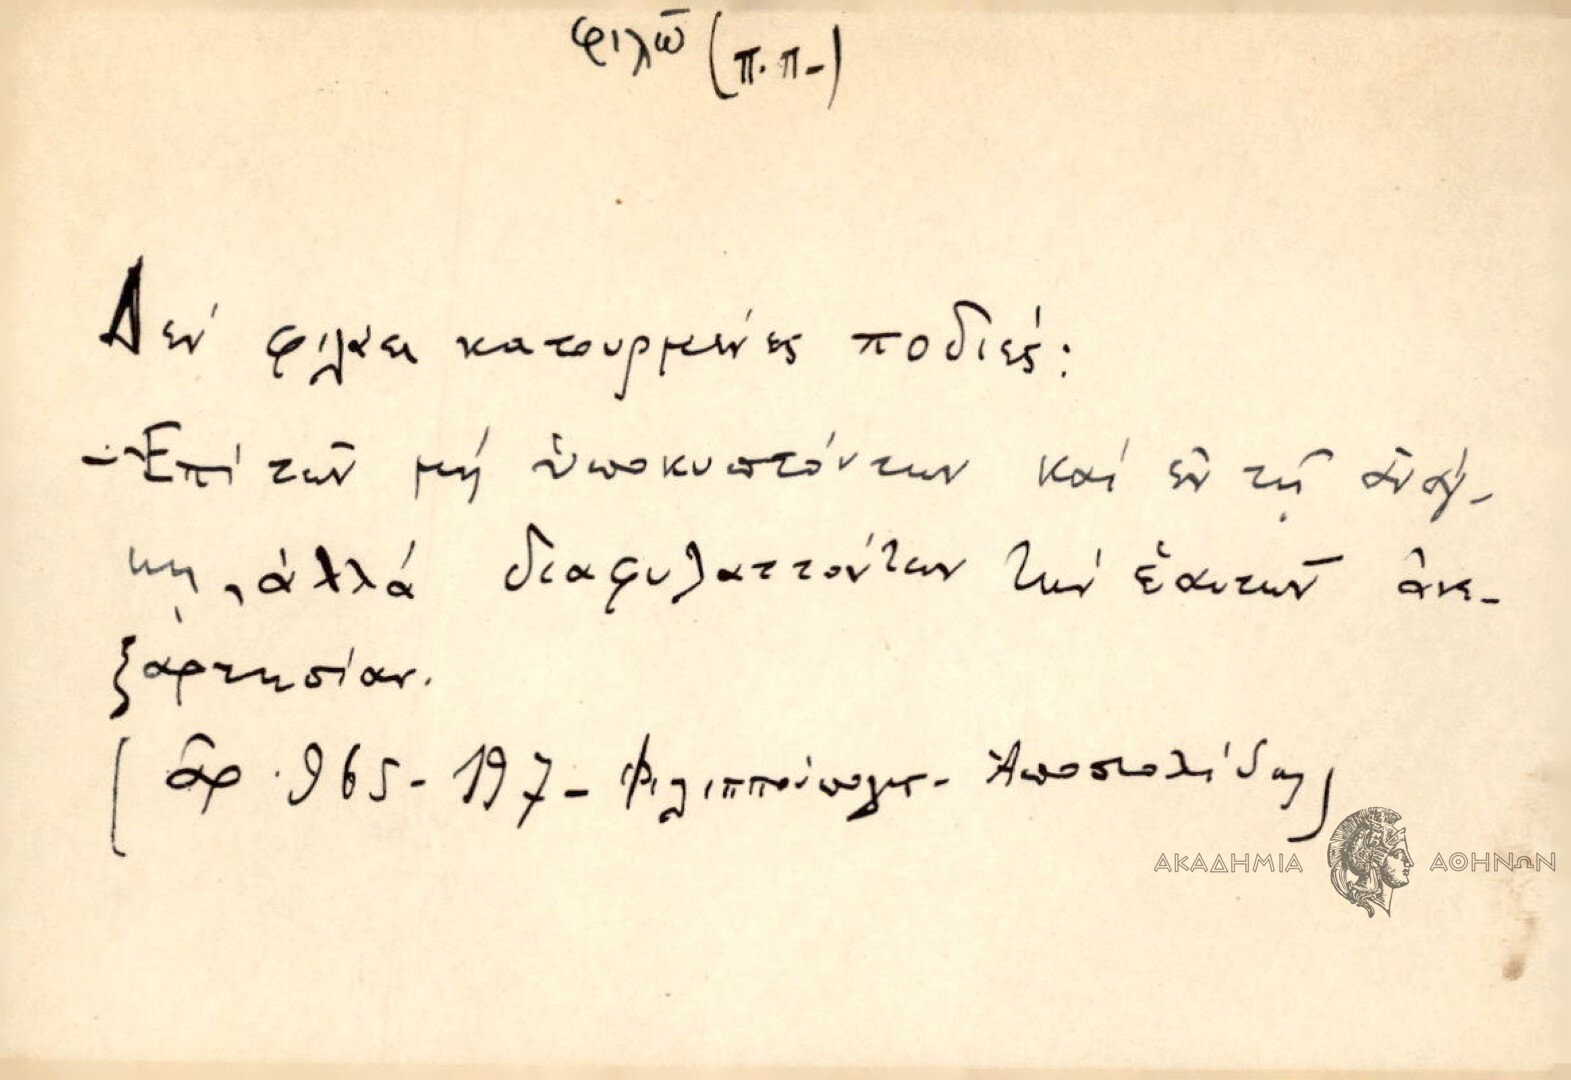 φιλῶ (π.π-)
Δέν φιλάει κατουρμένες ποδιές:
-Ἐπί τῶν μή ὑποκυπτόντων καί ἐν τῇ ἀνάγ-
κῃ, ἀλλά διαφυλαττόντων τήν ἑαυτῶν ἀνε-
ξαρτησίαν.
(ἀρ. 965-197- Φιλιππούπολις- Ἀποστολίδης)
ΑΚΑΔΗΜΙΑ ΑΘΗΝΩΝ